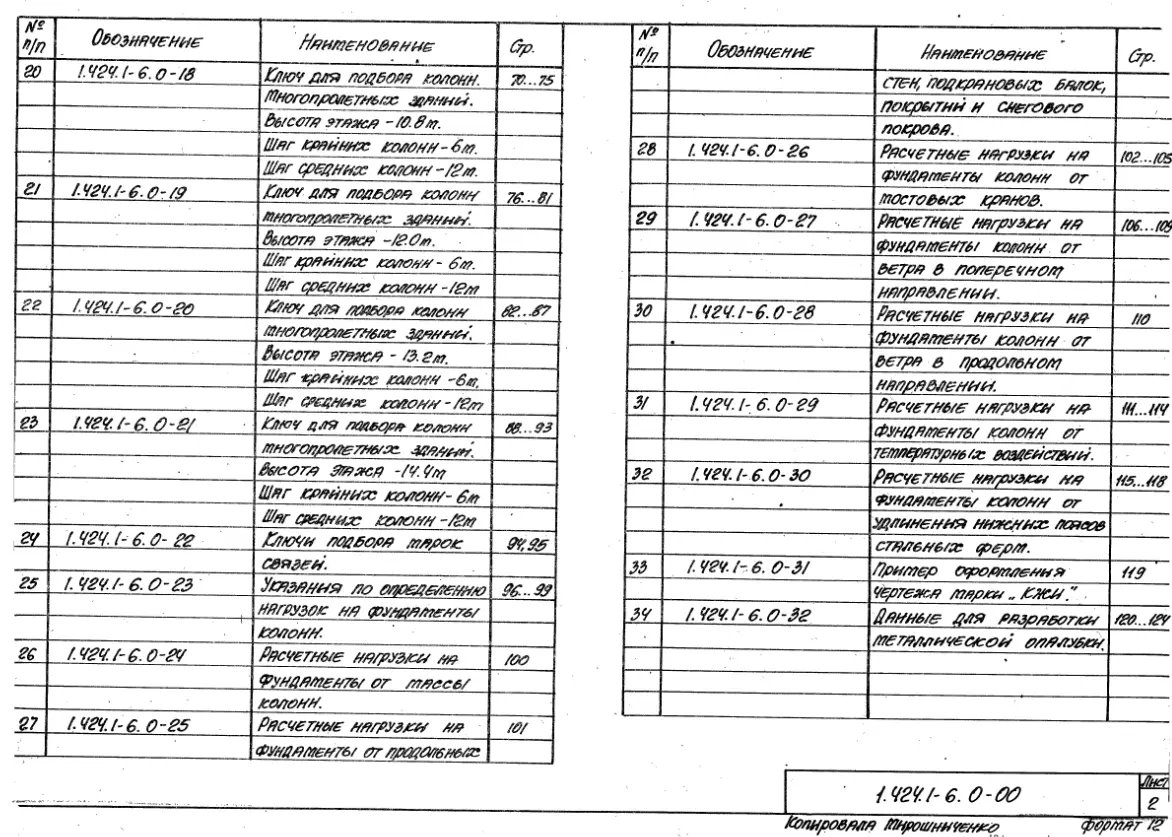 № п/п Обозначение Наименование Стр.
20 1.424.1-6.0-18 Ключ для подбора колонн. 70...75
Многопролетных зданий.
Высота этажа - 10.8 м.
Шаг крайних колонн - 6 м.
Шаг средних колонн - 12 м.
21 1.424.1-6.0-19 Ключ для подбора колонн 76...81
многопролетных зданий.
Высота этажа - 12.0 м.
Шаг крайних колонн - 6 м.
Шаг средних колонн - 12 м
22 1.424.1-6.0-20 Ключ для подбора колонн 82...87
многопролетных зданий.
Высота этажа - 13.2 м.
Шаг крайних колонн - 6 м.
Шаг средних колонн - 12 м
23 1.424.1-6.0-21 Ключ для подбора колонн 88...93
многопролетных зданий.
Высота этажа - 14.4 м
Шаг крайних колонн - 6 м
Шаг средних колонн - 12 м
24 1.424.1-6.0-22 Ключи подбора марок 94,95
связей.
25 1.424.1-6.0-23 Указания по определению 96...99
нагрузок на фундаменты
колонн.
26 1.424.1-6.0-24 Расчетные нагрузки на 100
фундаменты от массы
колонн.
27 1.424.1-6.0-25 Расчетные нагрузки на 101
фундаменты от продольных
№ п/п Обозначение Наименование Стр.
стен, подкрановых балок,
покрытий и снегового
покрова.
28 1.424.1-6.0-26 Расчетные нагрузки на 102...105
фундаменты колонн от
мостовых кранов.
29 1.424.1-6.0-27 Расчетные нагрузки на 106...109
фундаменты колонн от
ветра в поперечном
направлении.
30 1.424.1-6.0-28 Расчетные нагрузки на 110
фундаменты колонн от
ветра в продольном
направлении.
31 1.424.1-6.0-29 Расчетные нагрузки на 111...114
фундаменты колонн от
температурных воздействий.
32 1.424.1-6.0-30 Расчетные нагрузки на 115...118
фундаменты колонн от
удлинения нижних поясов
стальных ферм.
33 1.424.1-6.0-31 Пример оформления 119
чертежа марки „КЖИ."
34 1.424.1-6.0-32 Данные для разработки 120...124
металлической опалубки.
1.424.1-6.0-00
Лист
2
Копировала Мирошниченко формат 12